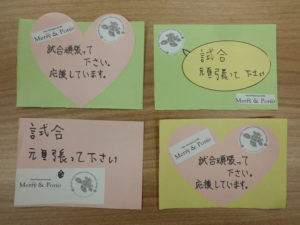 Merry & Porno
試合頑張って
下さい。
応援しています。
試合
頑張って下さい
試合
頑張って下さい
試合頑張って
下さい。
応援しています。